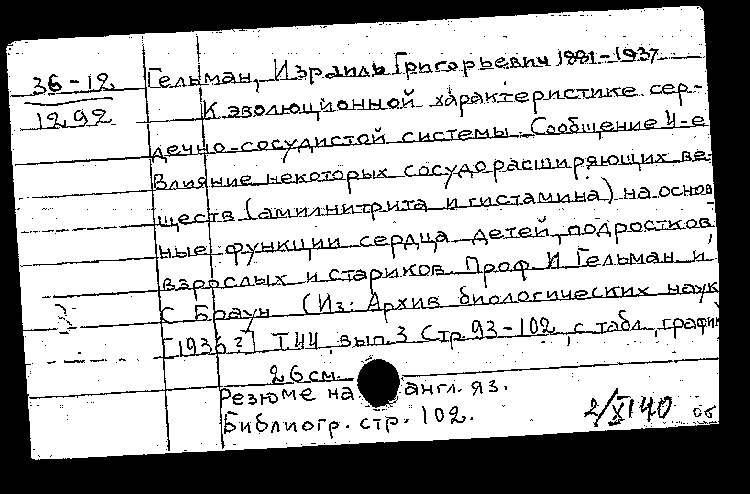 36-12
12,92
Гельман, Израиль Григорьевич 1881-1937
К эволюционной характеристике сер-
дечно-сосудистой системы. Сообщение 4-е
Влияние некоторых сосудорасширяющих ве-
ществ (амилнитрита и гистамина) на основ
ные функции сердца детей, подростков,
взрослых и стариков. Проф. И. Гельман и
С. Браун (Из: Архив биологических наук
[1936?] Т.44, вып. 3 Стр 93-102, с табл., график
26 см.
Резюме на англ. яз.
Библиогр. стр. 102.
2/XI 40